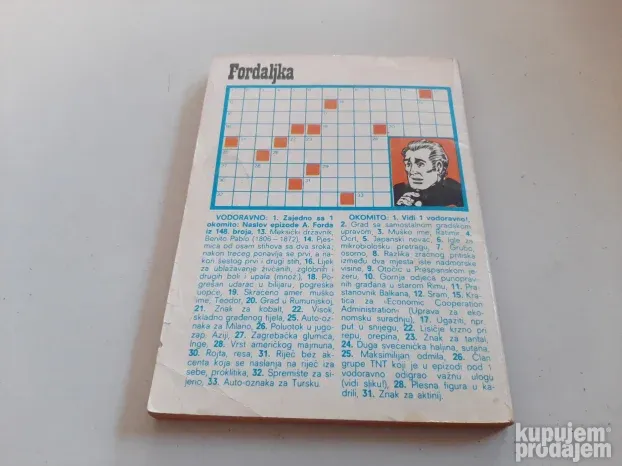 Fordaljka
VODORAVNO: 1. Zajedno sa 1
okomito: Naslov epizode A. Forda
iz 148. broja, 13. Meksički državnik,
Benito Pablo (1806—1872), 14. Pjes-
mica od osam stihova sa dva sroka;
nakon trećeg ponavlja se prvi, a na-
kon šestog prvi i drugi stih, 16. Lijek
za ublažavanje živčanih, zglobnih i
drugih boli i upala (množ.), 18. Po-
grešan udarac u biljaru, pogreška
uopće, 19. Skraćeno amer. muško
ime, Teodor, 20. Grad u Rumunjskoj,
21. Znak za kobalt, 22. Visok,
skladno građenog tijela, 25. Auto-oz-
naka za Milano, 26. Poluotok u jugo-
zap. Aziji, 27. Zagrebačka glumica,
Inge, 28. Vrst američkog majmuna,
30. Rojta, resa, 31. Riječ bez ak-
centa koja se naslanja na riječ iza
sebe, proklitika, 32. Spremište za si-
jeno, 33. Auto-oznaka za Tursku.
OKOMITO: 1. Vidi 1 vodoravno!,
2. Grad sa samostalnom gradskom
upravom, 3. Muško ime, Ratimir, 4.
Ocrt, 5. Japanski novac, 6. Igle za
mikrobiološku pretragu, 7. Grubo,
osorno, 8. Razlika zračnog pritiska
između dva mjesta iste nadmorske
visine, 9. Otočić u Prespanskom je-
zeru, 10. Gornja odjeća punoprav-
nih građana u starom Rimu, 11. Pra-
stanovnik Balkana, 12. Sram, 15. Kra-
tica za »Economic Cooperation
Administration« (Uprava za eko-
nomsku suradnju), 17. Ugaziti, npr.
put u snijegu, 22. Lisičje krzno pri
repu, orepina, 23. Znak za tantal,
24. Duga svećenička haljina, sutana,
25. Maksimilijan odmila, 26. Član
grupe TNT koji je u epizodi pod 1
vodoravno odigrao važnu ulogu
(vidi sliku!), 28. Plesna figura u ka-
drili, 31. Znak za aktinij.
kupujem
prodajem